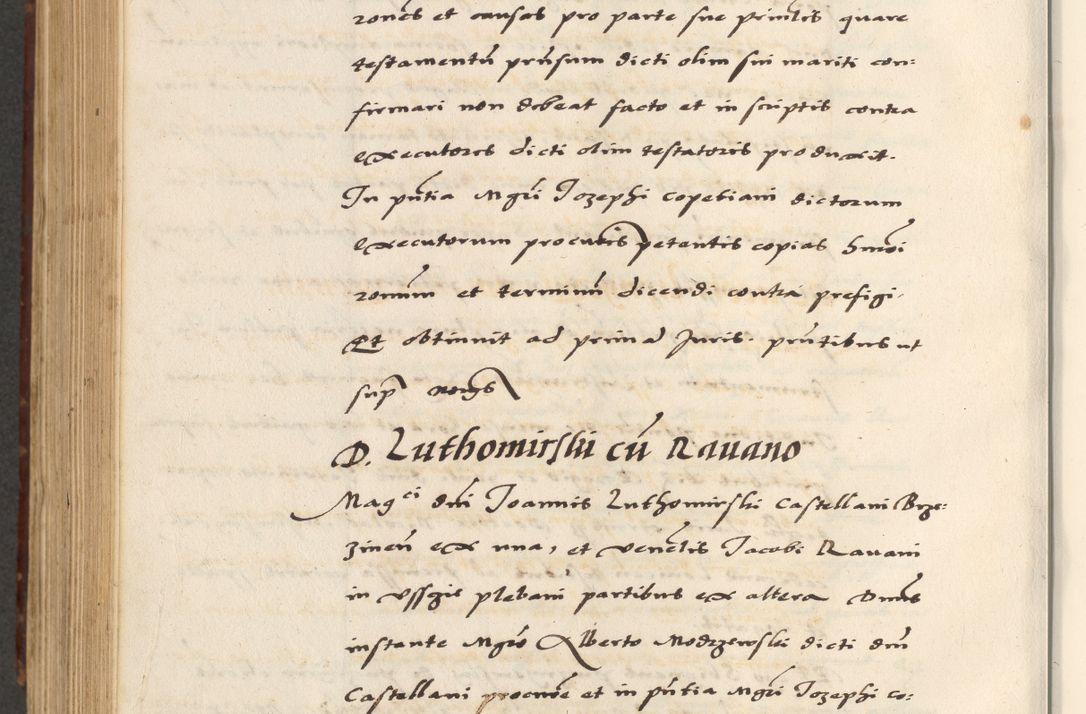 rones et causas pro parte sue principalis quare
testamentũ prñsum dicti olim sui mariti con:
firmari non debeat facto et in scriptis contra
executores dicti olim testatoris produxit.
In pñtia Mgri Jozephi Copebiani dictorum
executorum procuris petentis copias hmoi
ronum et terminũ dicendi contra prefigi.
Et obtinuit ad primã Juris. pñtibus ut
sup
D. Luthomirskii cũ Rauano
Magci dñi Joannis Luthomirski Castellani Brze:
zineñ ex una, et Venelis Jacobi Rauani
in Vssgie plebani partibus ex altera Dnus
instante Mgro Alberto Modrzewski dicti dñi
Castellani procure et in pñtia Mgri Jozephi Co: